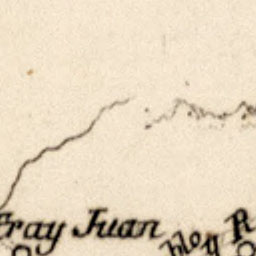 Fray Juan
blog R